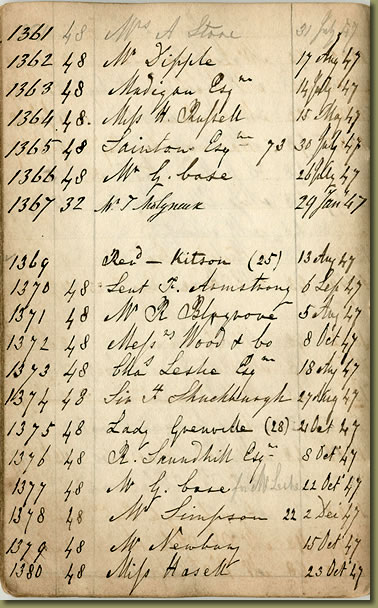 1361 48 Mrs A Stone 31 July 47
1362 48 Mr Dipple 17 Aug 47
1363 48 Madigan Esqre 14 July 47
1364 48. Miss H. Russell 15 May 47
1365 48 Sainton Esqre 73 30 July 47
1366 48 Mr G. Case 26 July 47
1367 32 Mr T Molyneux 29 Jan 47
1369 Revd — Kitson (25) 13 Aug 47
1370 48 Leut F. Armstrong 6 Sep 47
1371 48 Mr R Blagrove 5 Aug 47
1372 48 Messrs Wood & Co 8 Oct 47
1373 48 Chas Leslie Esqre 18 Aug 47
1374 48 Sir F Shuckburgh 27 Aug 47
1375 48 Lady Grenville (28) 21 Oct 47
1376 48 R. Saundhill Esqr 8 Oct 47
1377 48 Mr G. Case 22 Oct 47
1378 48 Mr Simpson 22 2 Dec 47
1379 48 Mr Newbury 15 Oct 47
1380 48 Miss Hasell 23 Oct 47